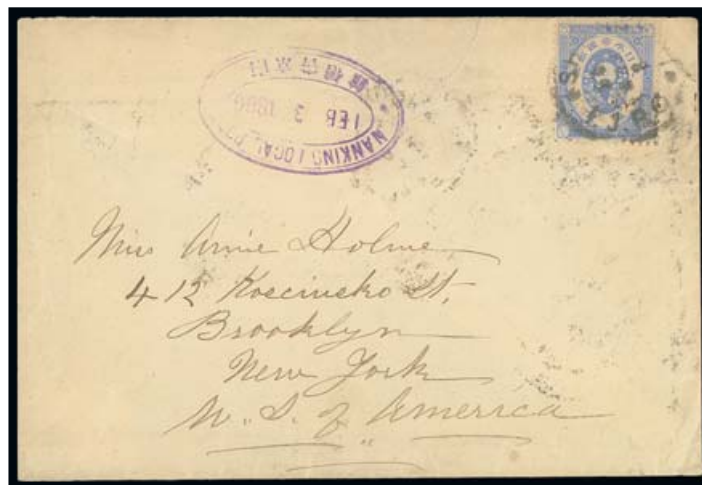 NANKING LOCAL
FEB 3
I.J.P.O
Miss Annie Holme
412 Kosciusko St.
Brooklyn
New York
U. S. of America